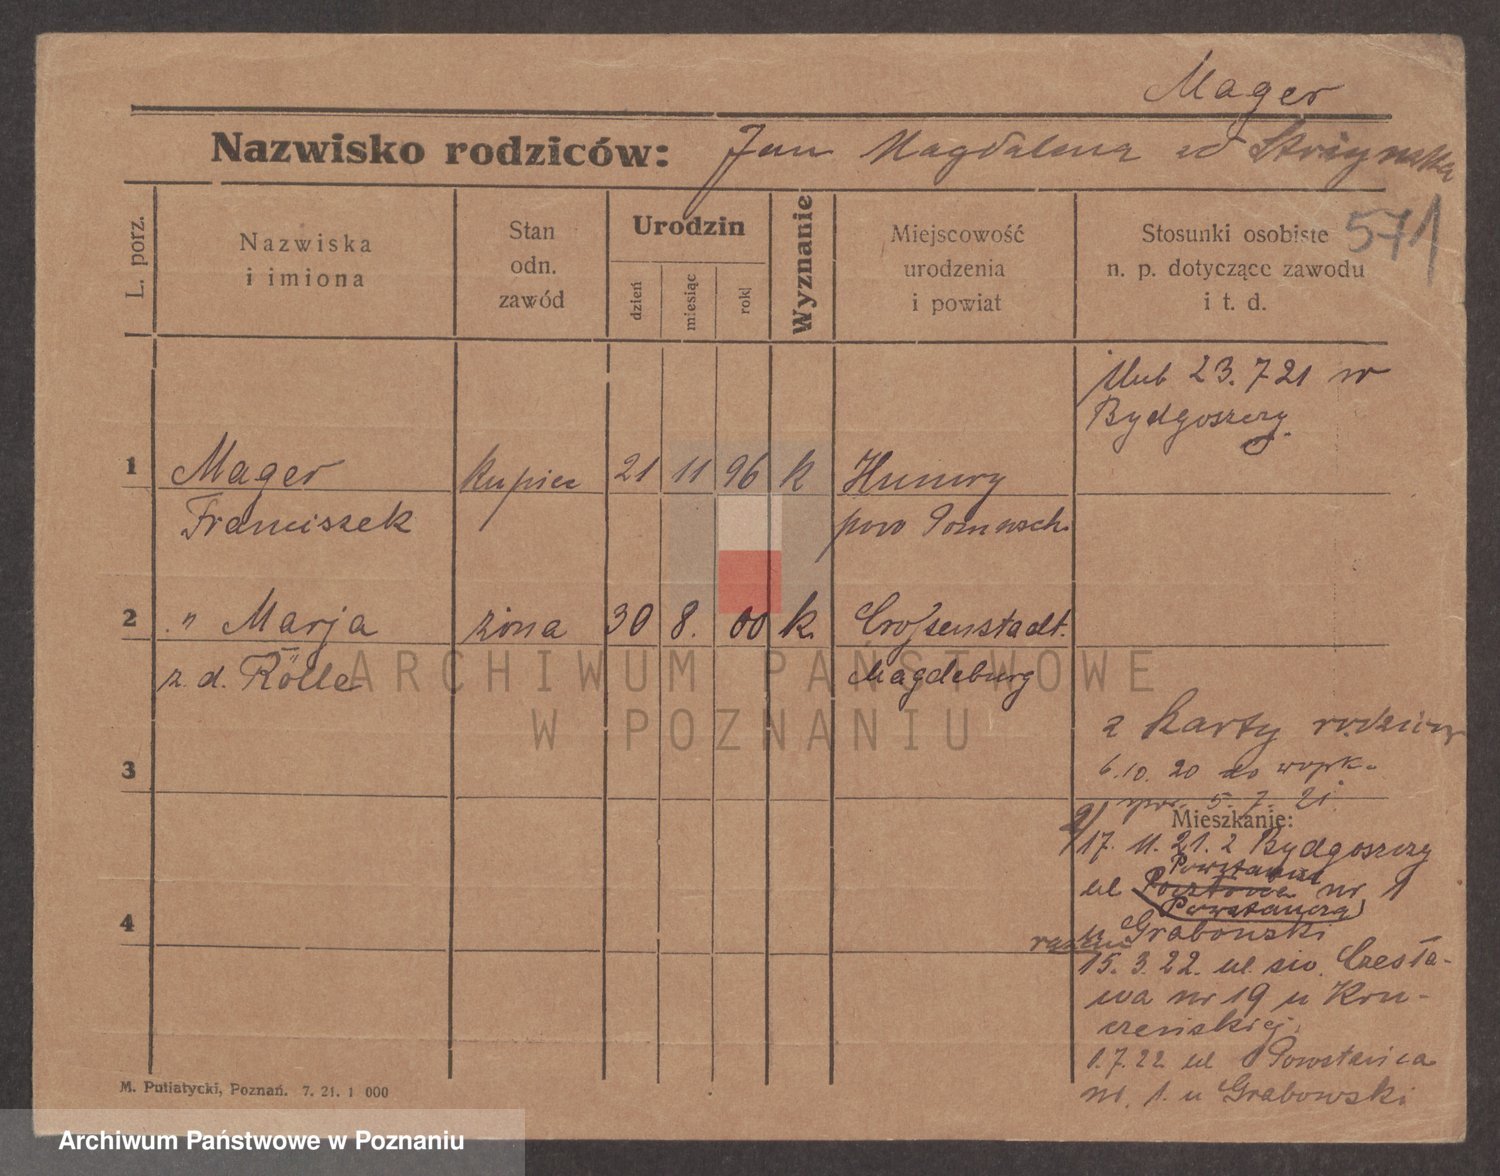 Mager
Nazwisko rodziców: Jan Magdalena zd
571
L. porz.
Nazwiska
i imiona
Stan
odn.
zawód
Urodzin
dzień
miesiąc
rok
Wyznanie
Miejscowość
urodzenia
i powiat
Stosunki osobiste
n. p. dotyczące zawodu
i t. d.
ślub 23. 7 21 w
Bydgoszczy.
1 Mager kupiec 21 11 96 k
Franciszek pow
2 " Marja żona 30 8. 00 k. Crossenstadt.
z. d. Rölle Magdeburg
z karty rodziców
6. 10. 20 do
3
5. 7. 21.
Mieszkanie:
2/ 17. 11. 21. z Bydgoszczy
Powstańca
ul Pocztowa nr 1
Powstańcza
4
u Grabowski
razem
15. 3. 22. ul. św. Czesła-
wa nr 19 u Kru-
czeńskiej.
1. 7. 22 ul Powstańca
nr. 1. u Grabowski
M. Putiatycki, Poznań. 7. 21. 1 000
ARCHIWUM PAŃSTWOWE
W POZNANIU
Archiwum Państwowe w Poznaniu